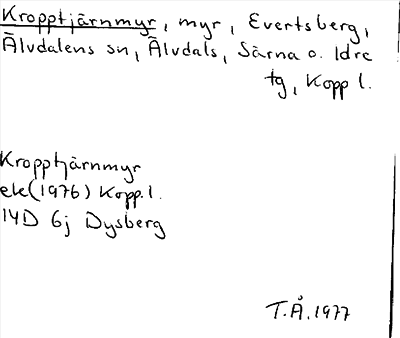 Kropptjärnmyr, myr, Evertsberg,
Älvdalens sn, Älvdals, Särna o. Idre
tg, Kopp l.
Kropptjärnmyr
ek(1976) Kopp.l.
14D 6j Dysberg
T.Å.1977